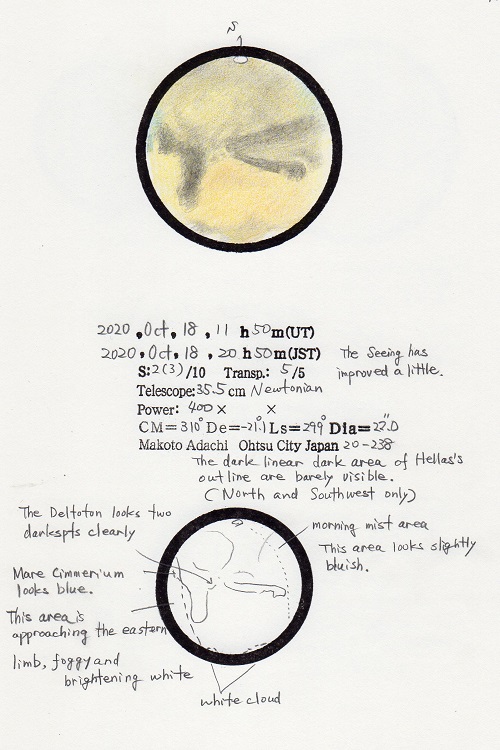 S
2020, Oct, 18, 11 h 50 m (UT)
2020, Oct, 18, 20 h 50 m (JST)
The Seeing has
improved a little.
S: 2(3)/10 Transp.: 5/5
Telescope: 35.5 cm Newtonian
Power: 400 × ×
CM= 310° De= -21.1° Ls= 299° Dia= 22".0
Makoto Adachi Ohtsu City Japan 20-238
The dark linear dark area of Hellas's
outline are barely visible.
(North and Southwest only)
The Deltoton looks two
darkspts clearly
morning mist area
This area looks slightly
bluish.
Mare Cimmerium
looks blue.
This area is
approaching the eastern
limb, foggy and
brightening white
white cloud